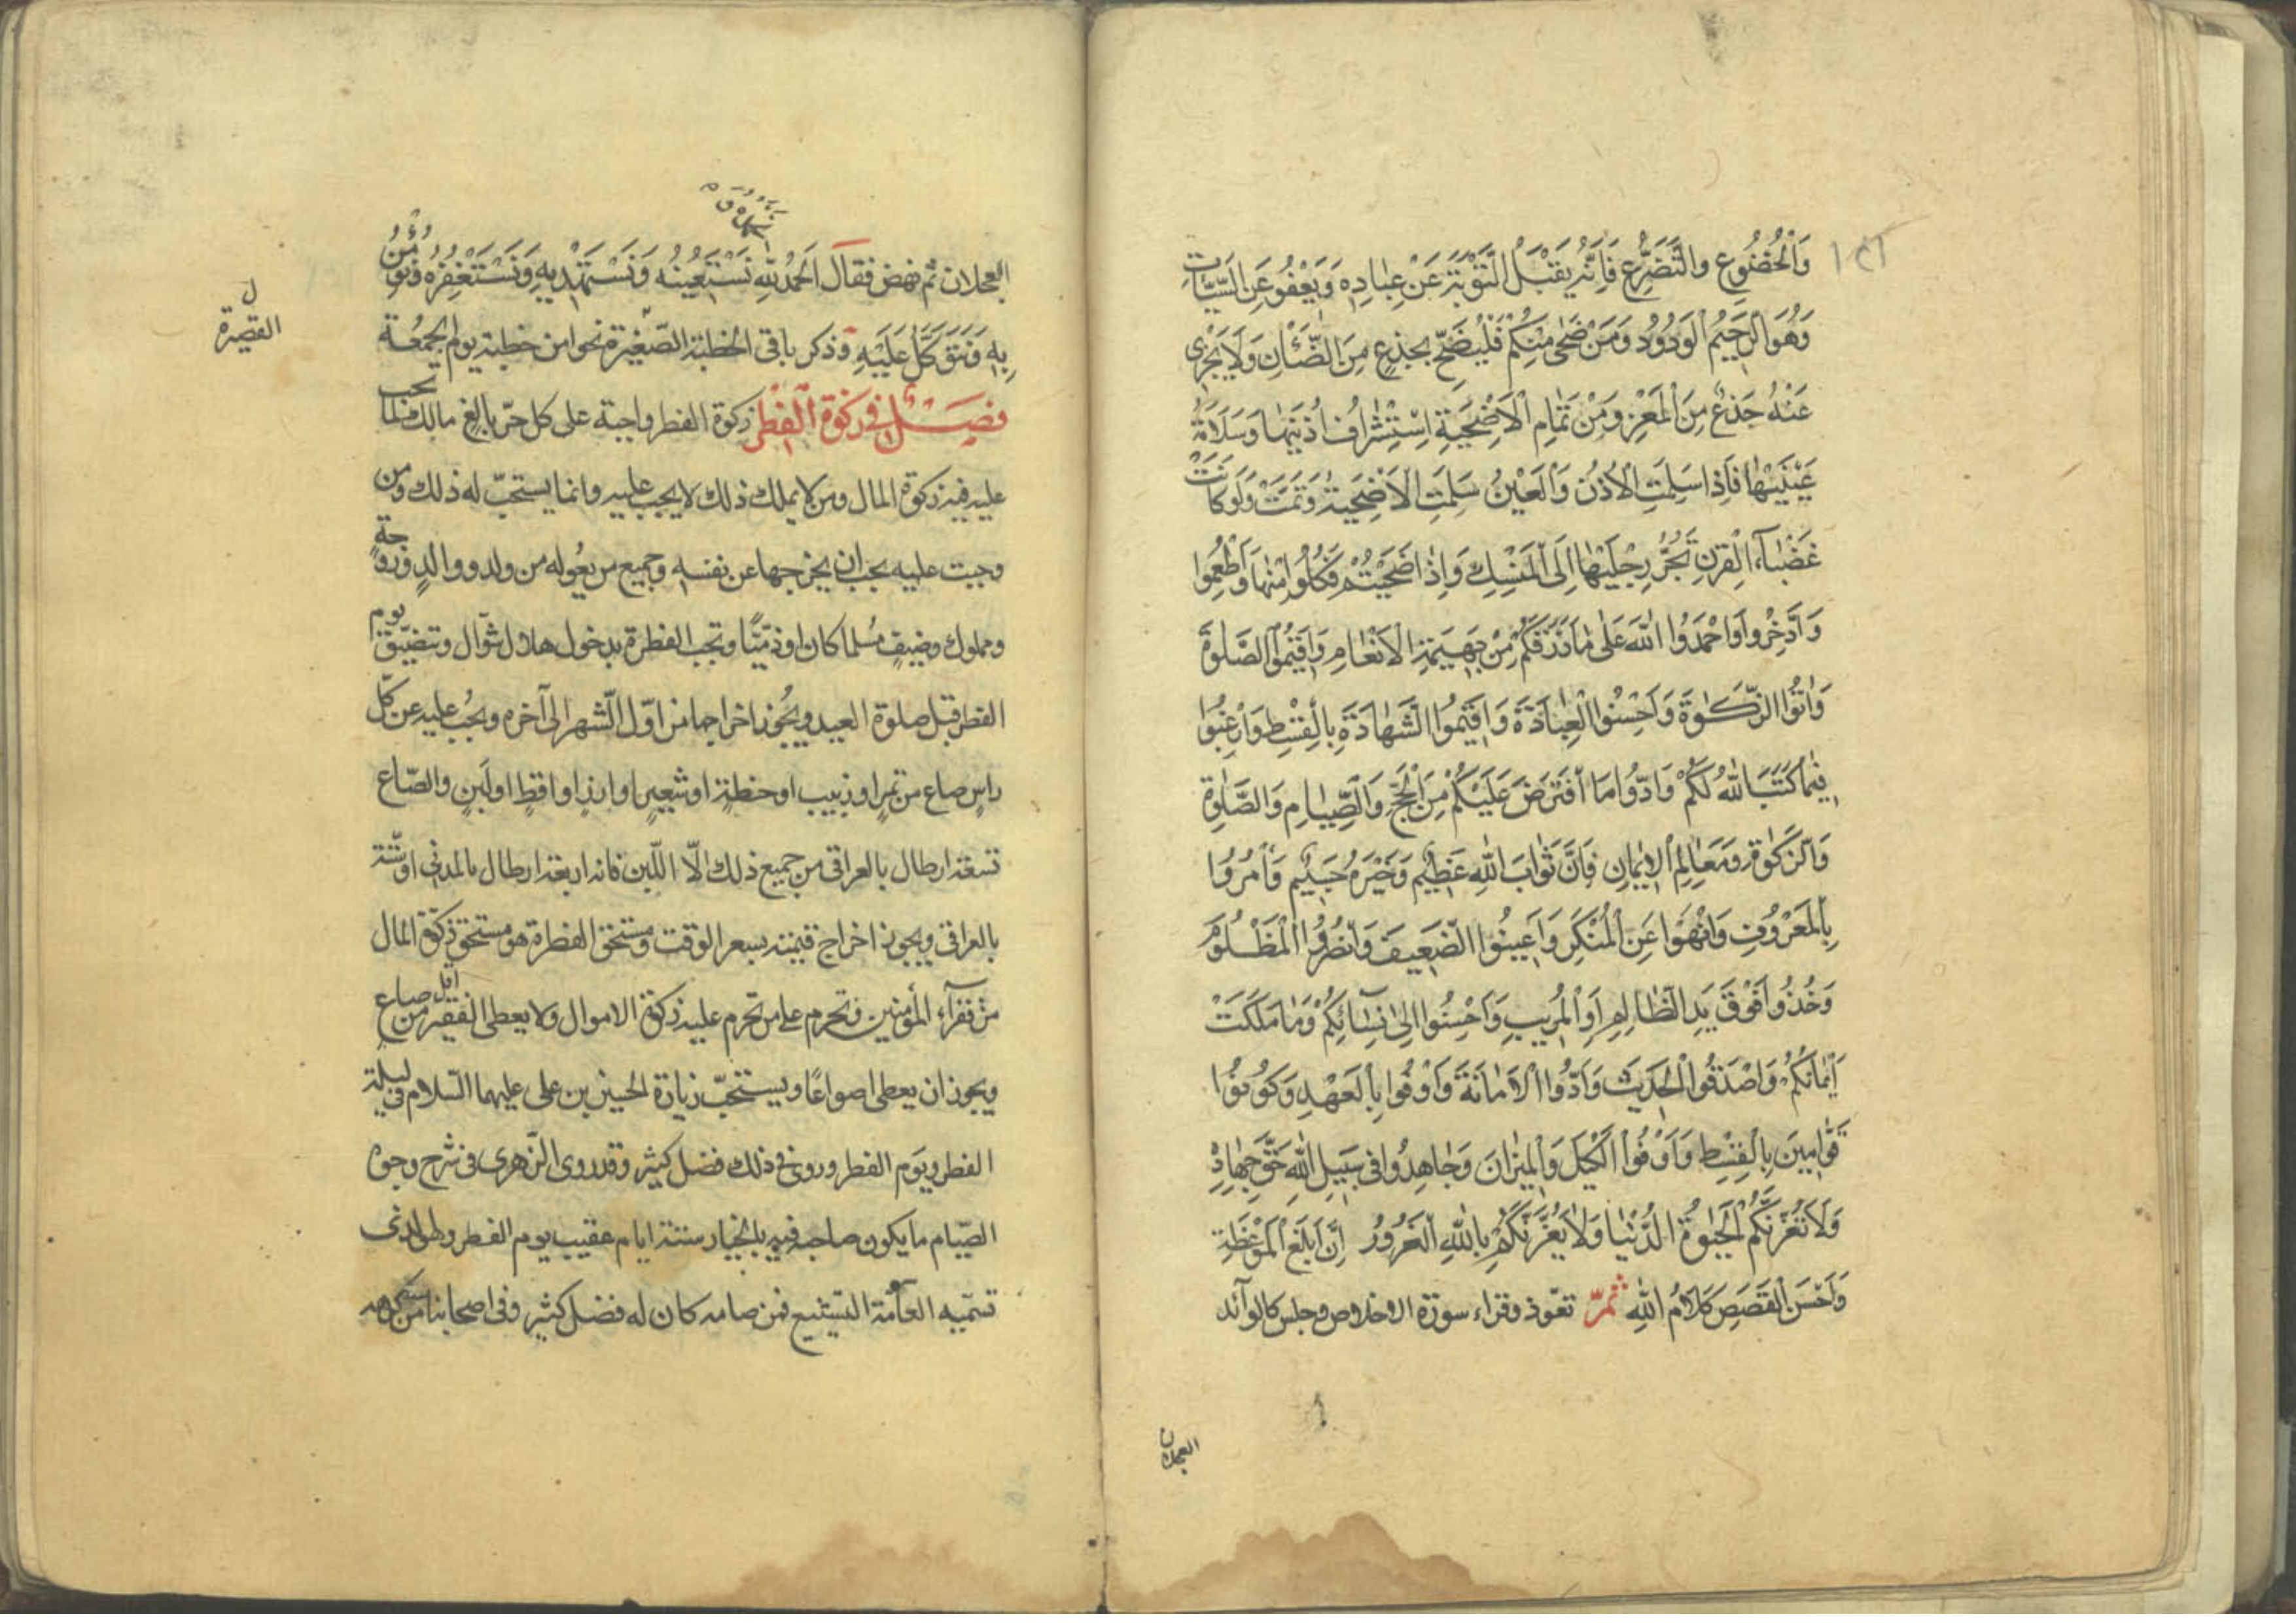 وَالْخُضُوعِ وَالتَّضَرُّعِ فَإِنَّهُ يَقْبَلُ التَّوْبَةَ عَنْ عِبَادِهِ وَيَعْفُو عَنِ السَّيِّئَاتِ
وَهُوَ الرَّحِيمُ الْوَدُودُ وَمَنْ ضَحَّى مِنْكُمْ فَلْيُضَحِّ بِجَذَعٍ مِنَ الضَّأْنِ وَلَا يُجْزِي
عَنْهُ جَذَعٌ مِنَ الْمَعْزِ وَمِنْ تَمَامِ الْأُضْحِيَّةِ اسْتِشْرَافُ أُذُنَيْهَا وَسَلَامَةُ
عَيْنَيْهَا فَإِذَا سَلِمَتِ الْأُذُنُ وَالْعَيْنُ سَلِمَتِ الْأُضْحِيَّةُ وَتَمَّتْ وَلَوْ كَانَتْ
عَضْبَاءَ الْقَرْنِ تَجُرُّ رِجْلَيْهَا إِلَى الْمَنْسِكِ وَإِذَا ضَحَّيْتُمْ فَكُلُوا مِنْهَا وَأَطْعِمُوا
وَادَّخِرُوا وَاحْمَدُوا اللهَ عَلَى مَا رَزَقَكُمْ مِنْ بَهِيمَةِ الْأَنْعَامِ وَأَقِيمُوا الصَّلَوةَ
وَآتُوا الزَّكَوةَ وَأَحْسِنُوا الْعِبَادَةَ وَأَقِيمُوا الشَّهَادَةَ بِالْقِسْطِ وَارْغَبُوا
فِيمَا كَتَبَ اللهُ لَكُمْ وَأَدُّوا مَا افْتَرَضَ عَلَيْكُمْ مِنَ الْحَجِّ وَالصِّيَامِ وَالصَّلَوةِ
وَالزَّكَوةِ وَمَعَالِمِ الْإِيمَانِ فَإِنَّ ثَوَابَ اللهِ عَظِيمٌ وَخَيْرَهُ جَسِيمٌ وَأْمُرُوا
بِالْمَعْرُوفِ وَانْهَوْا عَنِ الْمُنْكَرِ وَأَعِينُوا الضَّعِيفَ وَانْصُرُوا الْمَظْلُومَ
وَخُذُوا فَوْقَ يَدِ الظَّالِمِ أَوِ الْمُرِيبِ وَأَحْسِنُوا إِلَى نِسَائِكُمْ وَمَا مَلَكَتْ
أَيْمَانُكُمْ وَاصْدُقُوا الْحَدِيثَ وَأَدُّوا الْأَمَانَةَ وَأَوْفُوا بِالْعَهْدِ وَكُونُوا
قَوَّامِينَ بِالْقِسْطِ وَأَوْفُوا الْكَيْلَ وَالْمِيزَانَ وَجَاهِدُوا فِي سَبِيلِ اللهِ حَقَّ جِهَادِهِ
وَلَا تَغُرَّنَّكُمُ الْحَيَوةُ الدُّنْيَا وَلَا يَغُرَّنَّكُمْ بِاللهِ الْغَرُورُ إِنَّ أَبْلَغَ الْمَوْعِظَةِ
وَأَحْسَنَ الْقَصَصِ كَلَامُ اللهِ ثُمَّ تعوذ وقراء سورة الاخلاص وجلس كالرائد
العجلان
العجلان ثم نهض فقال الْحَمْدُ لِلّهِ نَسْتَعِينُهُ وَنَسْتَهْدِيهِ وَنَسْتَغْفِرُهُ وَنُؤْمِنُ
بِهِ وَنَتَوَكَّلُ عَلَيْهِ وذكر باقي الخطبة الصّغيرة نحوا من خطبة يوم الجمعة
القصيرة ل
فصل في زكوة الفطر زكوة الفطر واجبة على كل حرّ بالغ مالك لما يجب
عليه فيه زكوة المال ومن لا يملك ذلك لا يجب عليه وانما يستحبّ له ذلك ومن
وجبت عليه يجب ان يخرجها عن نفسه وجميع من يعُوله من ولد ووالد وزوجة
ومملوك وضيف مُسلما كان او ذمّيّا وتجب الفطرة بدخول هلال شوّال وتتضيّق يوم
الفطر قبل صلوة العيد ويجُوز اخراجها من اوّل الشهر الى آخره ويجُب عليه عن كلّ
راس صاع من تمرٍ او زبيب او حنطةٍ او شعيرٍ او ارزٍ او اقطٍ او لبَنٍ والصّاع
تسعة ارطال بالعراقي من جميع ذلك الّا اللّبن فانه اربعة ارطال بالمدني او ستّة
بالعراقي ويجوز اخراج قيمته بسعر الوقت ومستحق الفطرة هو مستحق زكوة المال
من فقرآء المؤمنين وتحرم على من تحرم عليه زكوة الاموال ولا يعطى الفقير اقل من صاع
ويجوز ان يعطى اصواعًا ويستحبّ زيارة الحسين بن على عليهما السّلام في ليلة
الفطر ويَوم الفطر وروى في ذلك فضل كثير وقد روى الزّهرى في شرح وجوه
الصّيام ما يكون صاحبه فيه بالخيار ستة ايام عقيب يوم الفطر وهى الذى
تسمّيه العامّة التشييع فمن صامه كان له فضل كثير وفى اصحابنا من كرهه